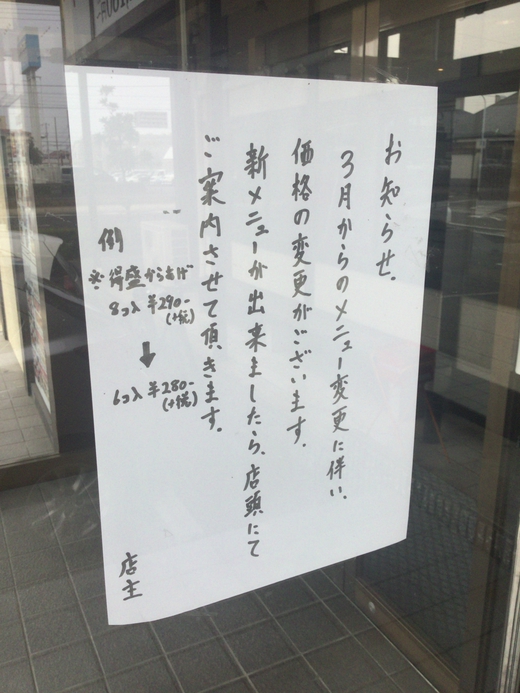 お知らせ.
3月からのメニュー変更に伴い、
価格の変更がございます.
新メニューが出来ましたら、店頭にて
ご案内させて頂きます.
例
※得盛からあげ
8コ入 ¥290-
(+税)
↓
6コ入 ¥280-
(+税)
店主